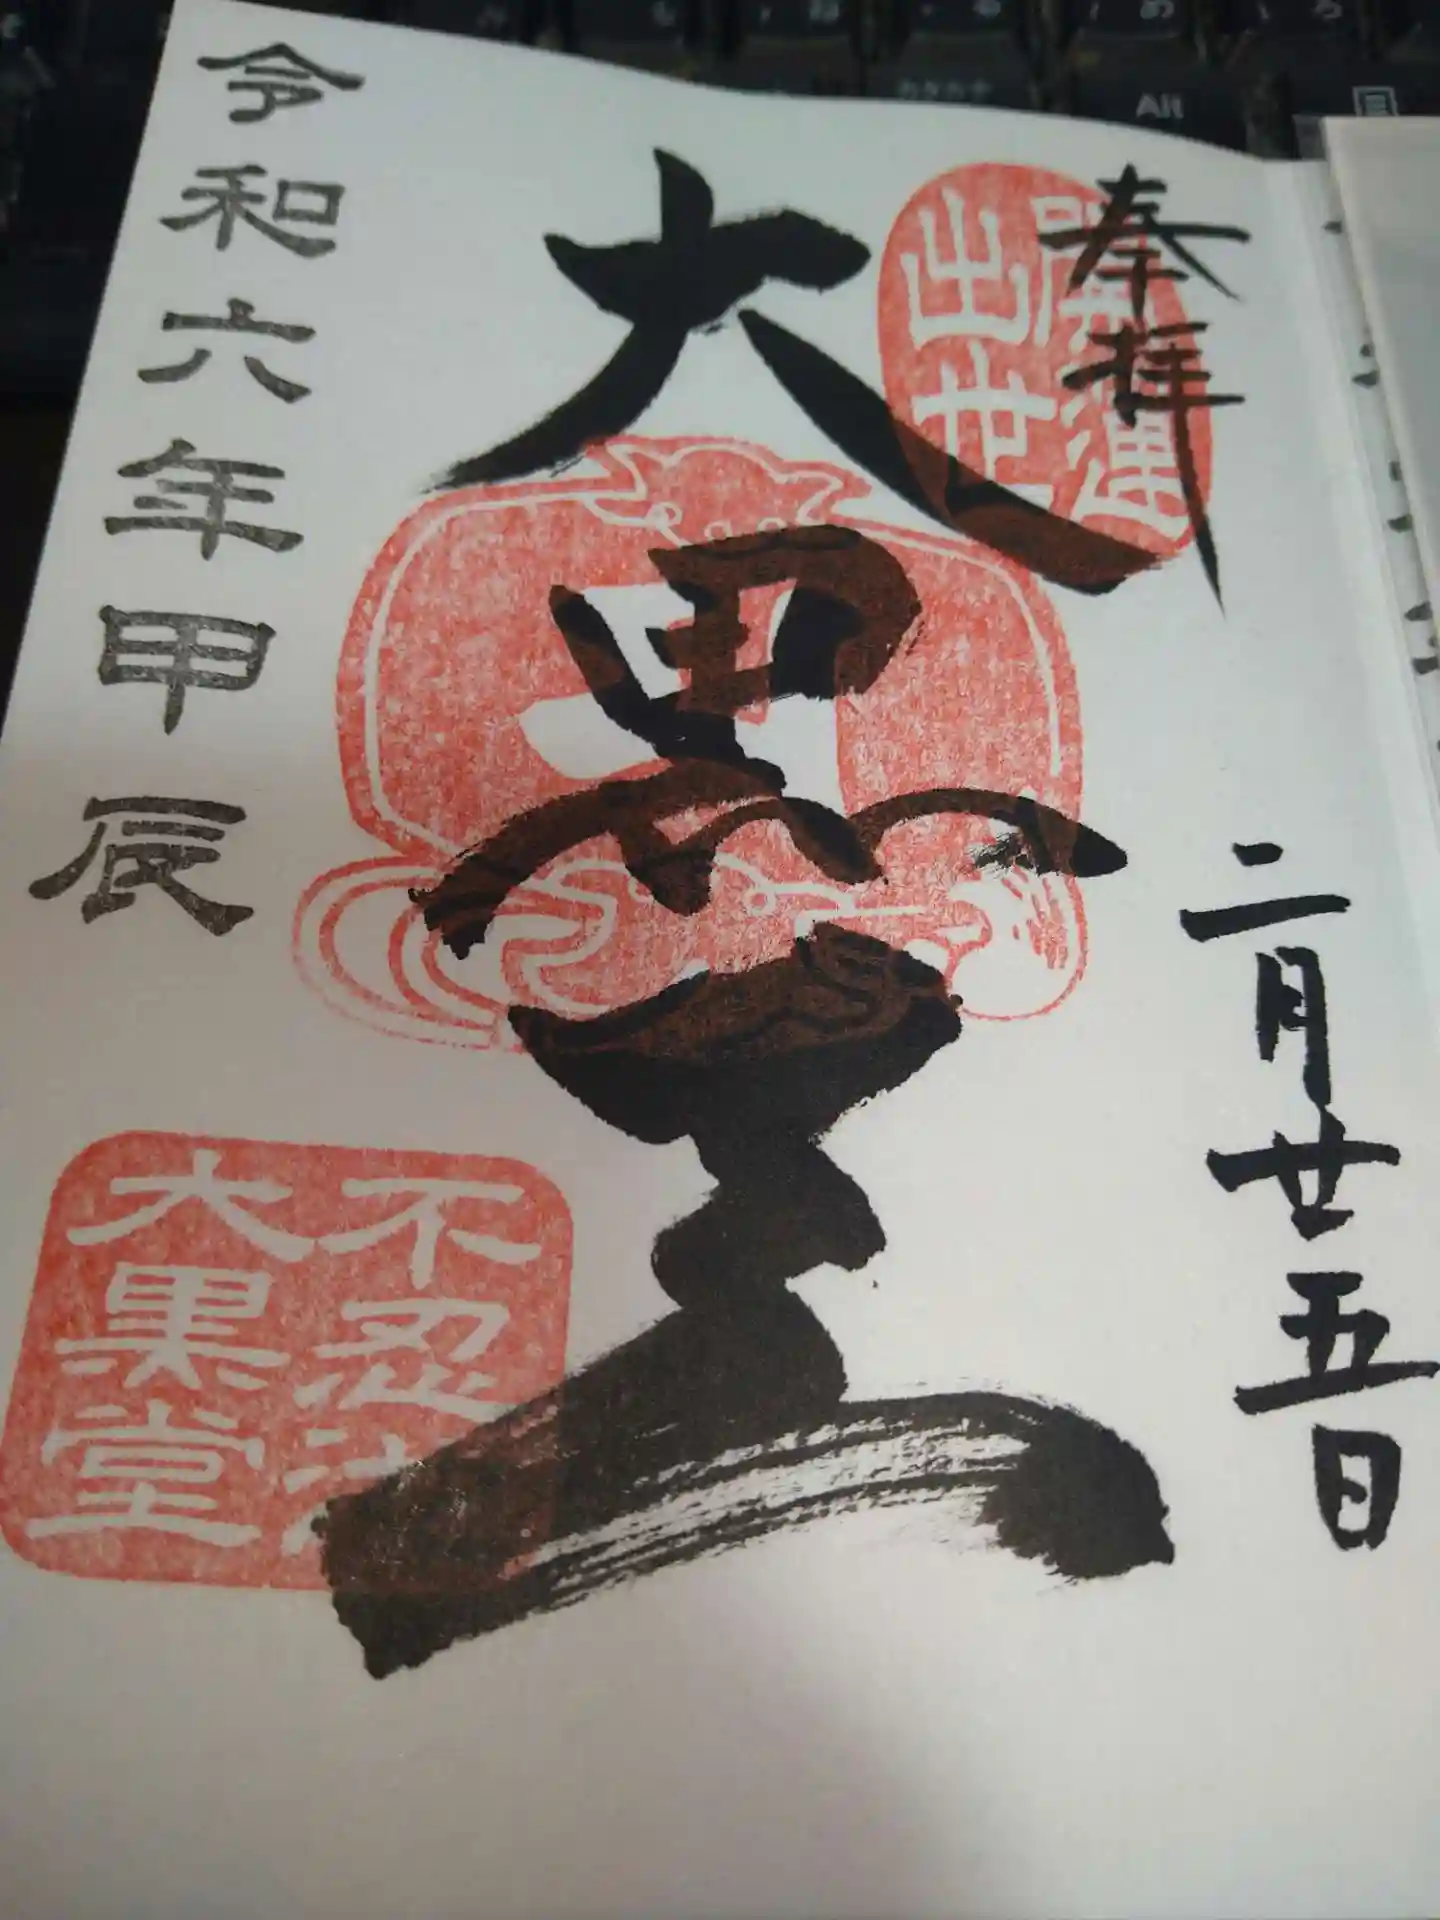 奉拝
開運
出世
二月廿五日
大黒天
令和六年甲辰
不忍
大黒堂
Alt